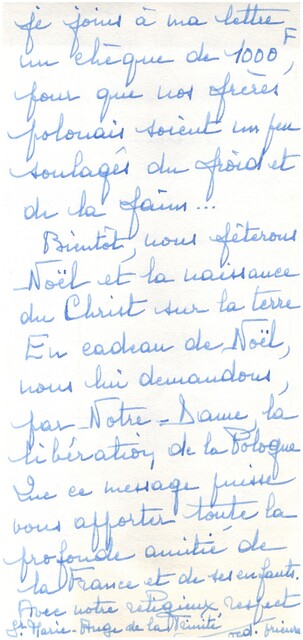 je joins à ma lettre
un chèque de 1000F,
pour que nos frères
polonais soient un peu
soulagés du froid et
de la faim...
Bientôt, nous fêterons
Noël et la naissance
du Christ sur la terre
En cadeau de Noël,
nous lui demandons,
par Notre-Dame, la
libération de la Pologne
Que ce message puisse
vous apporter toute la
profonde amitié de
la France et de ses enfants.
Avec notre religieux respect
Sr Marie-Ange de la Trinité